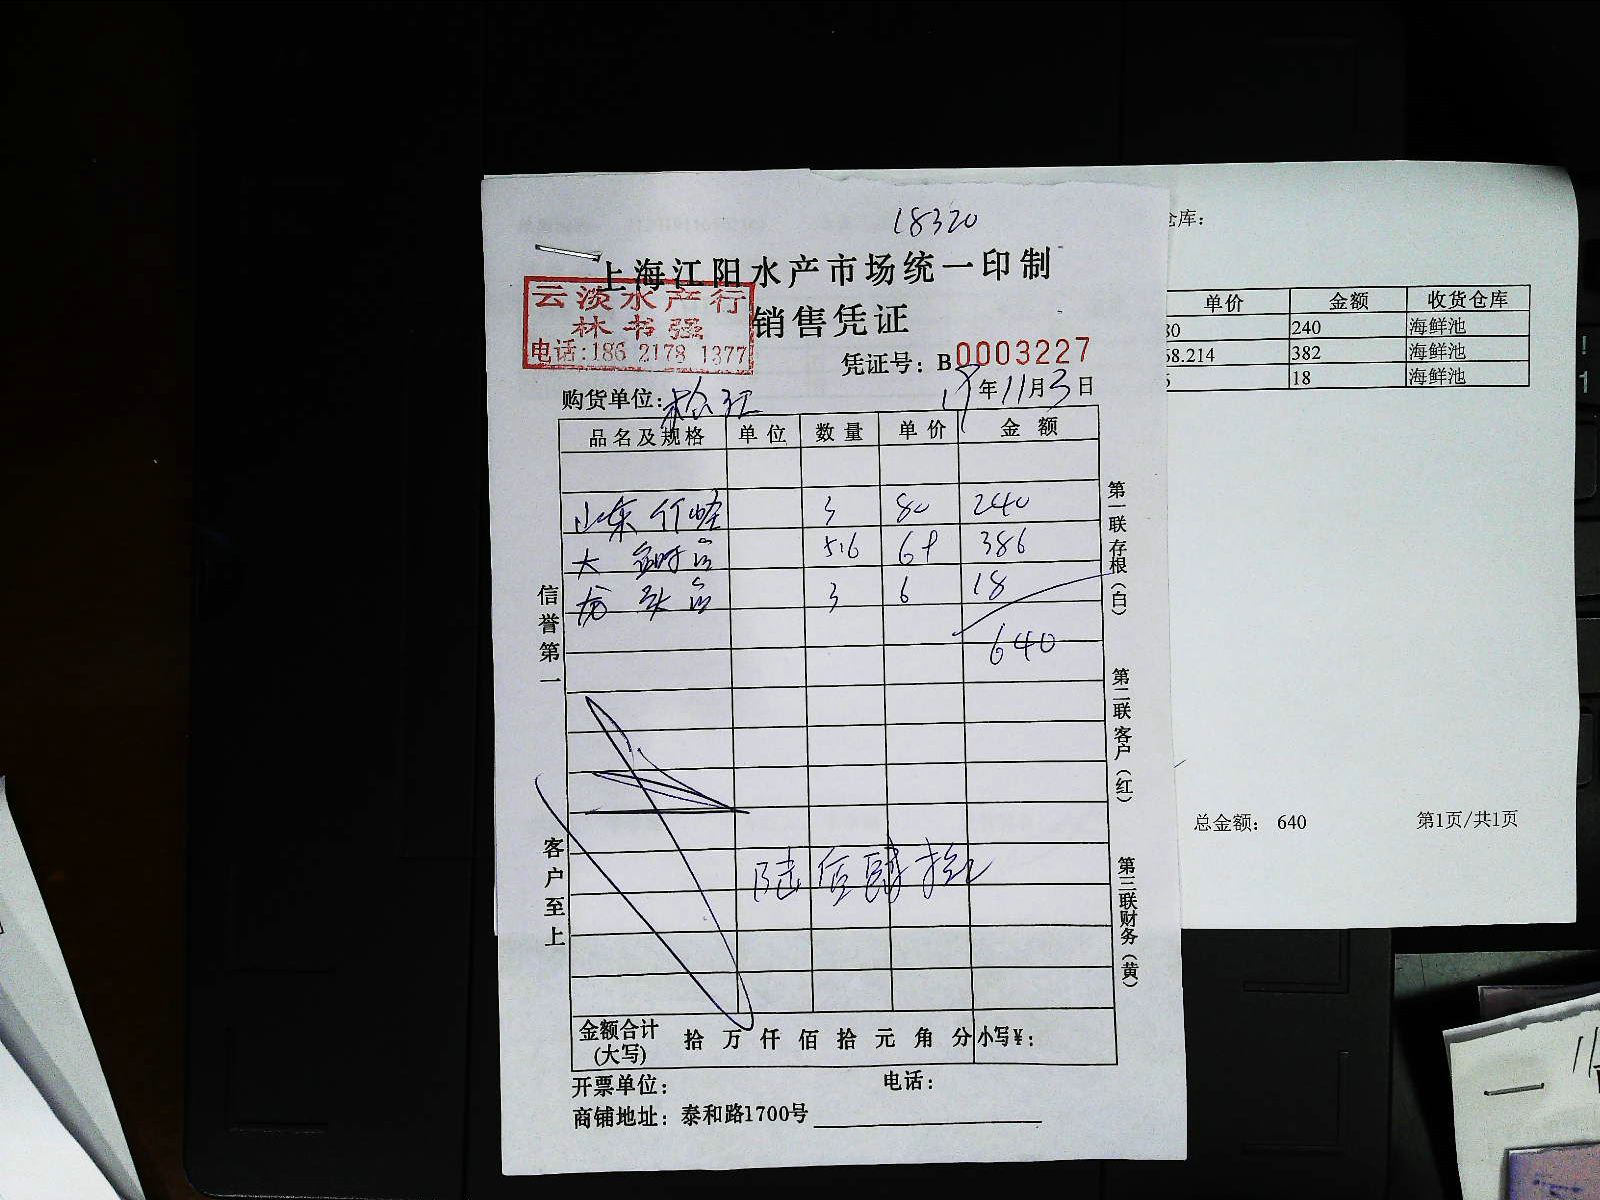 18320
上海江阳水产市场统一印制
云淡水产行
林书强
电话:186 2178 1377
销售凭证
凭证号：B0003227
购货单位：松江
18年11月3日
品名及规格 单位 数量 单价 金额
山东竹蛏 3 80 240
大 鲳鱼 5.6 68 386
龙头鱼 3 6 18
640
陆佰肆拾元
金额合计(大写) 拾 万 仟 佰 拾 元 角 分 小写¥：
开票单位： 电话：
商铺地址：泰和路1700号
信誉第一
客户至上
第一联存根（白）
第二联客户（红）
第三联财务（黄）
仓库：
单价 金额 收货仓库
80 240 海鲜池
68.214 382 海鲜池
6 18 海鲜池
总金额： 640 第1页/共1页